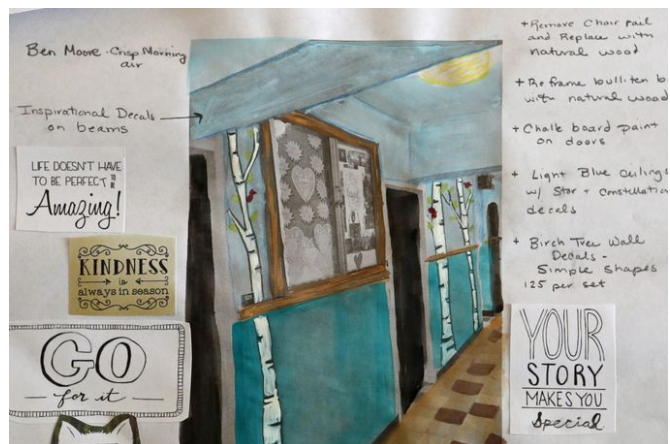 Ben Moore · Crisp Morning
air
Inspirational Decals
on beams
LIFE DOESN'T HAVE
TO BE PERFECT TO BE
Amazing!
KINDNESS
is
always in season
GO
for it
+ Remove Chair rail
and Replace with
natural wood
+ Reframe bulliten b
with natural wood
+ Chalk board paint
on doors
+ Light Blue Ceilings
w/ Star + Constellation
decals
+ Birch Tree Wall
Decals -
Simple Shapes
125 per set
YOUR
STORY
MAKES YOU
Special